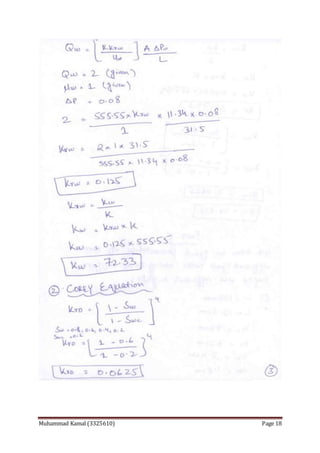 Qw = [ K.Krw / Uw ] A ΔPw / L
Qw = 2 (given)
Mw = 1 (given)
ΔP = 0.08
2 = 555.55 x Krw / 1 x 11.34 x 0.08 / 31.5
Krw = 2 x 1 x 31.5 / 555.55 x 11.34 x 0.08
Krw = 0.125
Krw = Kw / K
Kw = Krw x K
Kw = 0.125 x 555.55
Kw = 72.33
② COREY Equation
Kro = [ 1 - Sw / 1 - Swc ]⁴
Sw = 0.8, 0.6, 0.4, 0.2
Swc = 0.2
Kro = [ 1 - 0.6 / 1 - 0.2 ]⁴
Kro = 0.0625
③
Muhammad Kamal (3325610) Page 18